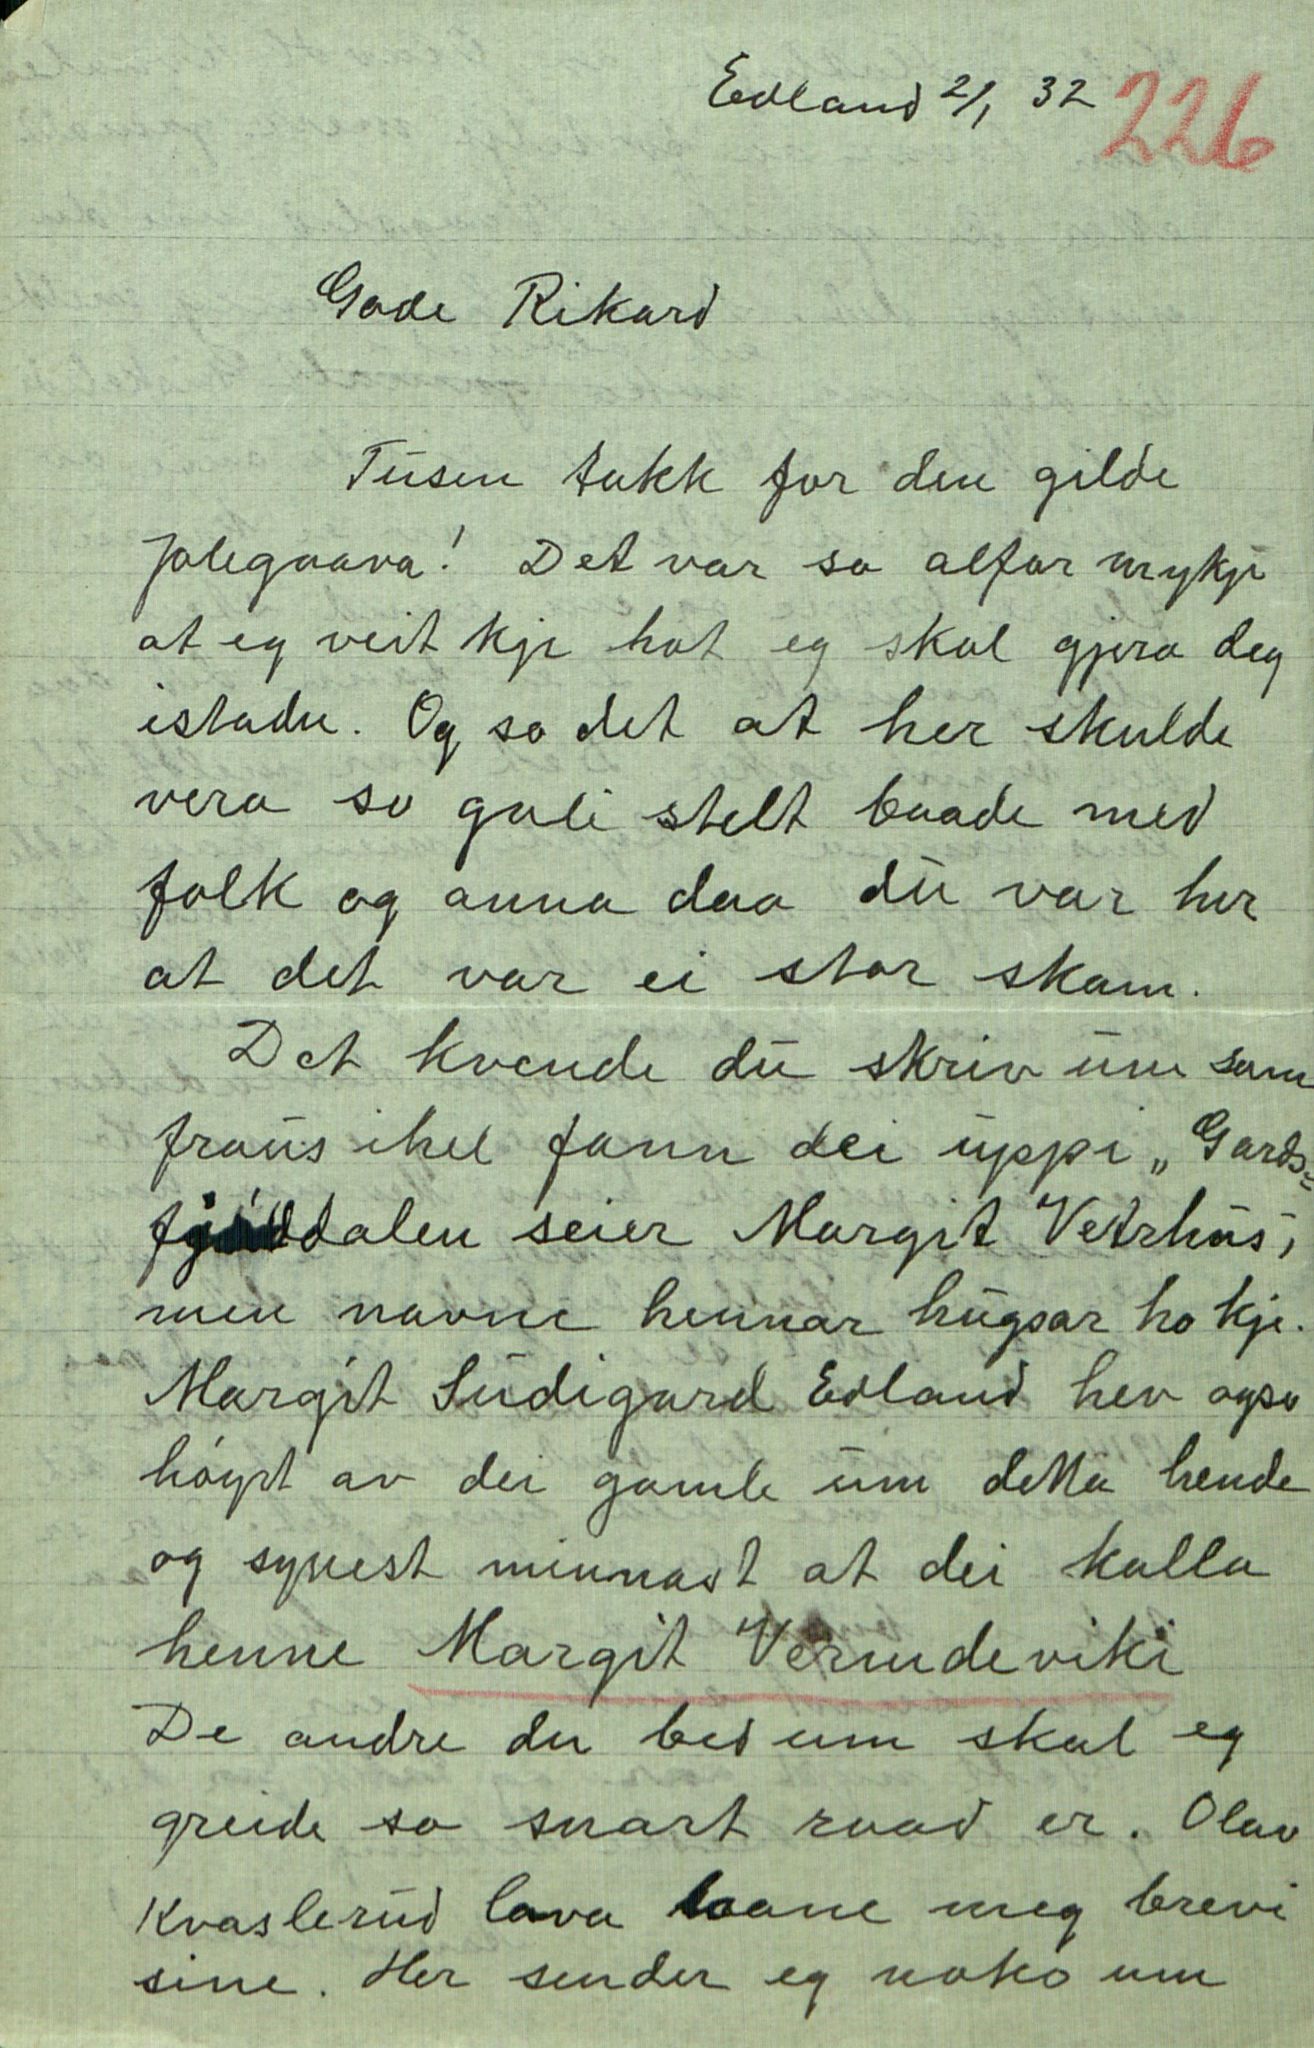 Edland 2/1 32
226
Gode Rikard
Tusen takk for den gilde
jolegaava! Det var so alfor mykje
at eg veit kje hot eg skal gjera deg
istaden. Og so det at her skulde
vera so gali stelt baade med
folk og anna daa du var her
at det var ei stor skam.
Det kvende du skriv um som
fraus ihel fann dei uppi „Gards=
fjøddalen seier Margit Vetrhus,
men navne hennar hugsar ho kje.
Margit Sudigard Edland hev ogso
høyrt av dei gamle um detta hende
og synest minnast at dei kalla
henne Margit Vermdeviki
De andre du bed um skal eg
greide so snart raad er. Olav
Kvaslerud lova laane meg brevi
sine. Her sender eg noko um